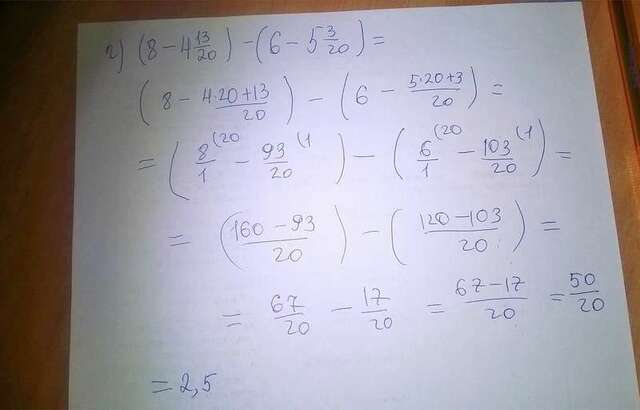 г) (8 - 4 13/20) - (6 - 5 3/20) =
(8 - 4·20+13/20) - (6 - 5·20+3/20) =
= (8/1 (20 - 93/20 (1) - (6/1 (20 - 103/20 (1) =
= (160-93/20) - (120-103/20) =
= 67/20 - 17/20 = 67-17/20 = 50/20
= 2,5